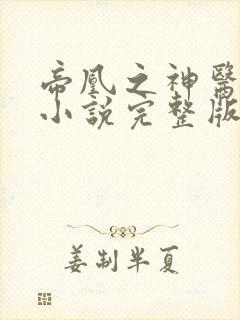 帝凰之神醫
小說完整版
姜制半夏